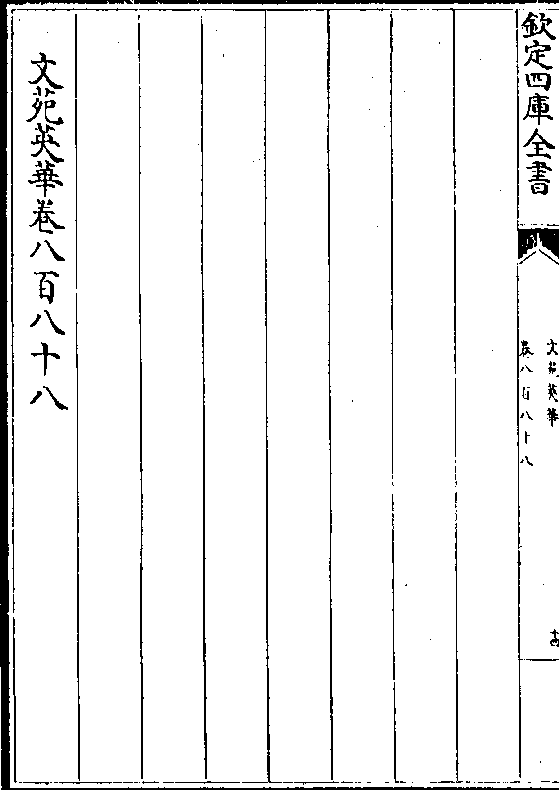 欽定四庫全書
文苑英華
卷八百八十八
十四
文苑英華卷八百八十八